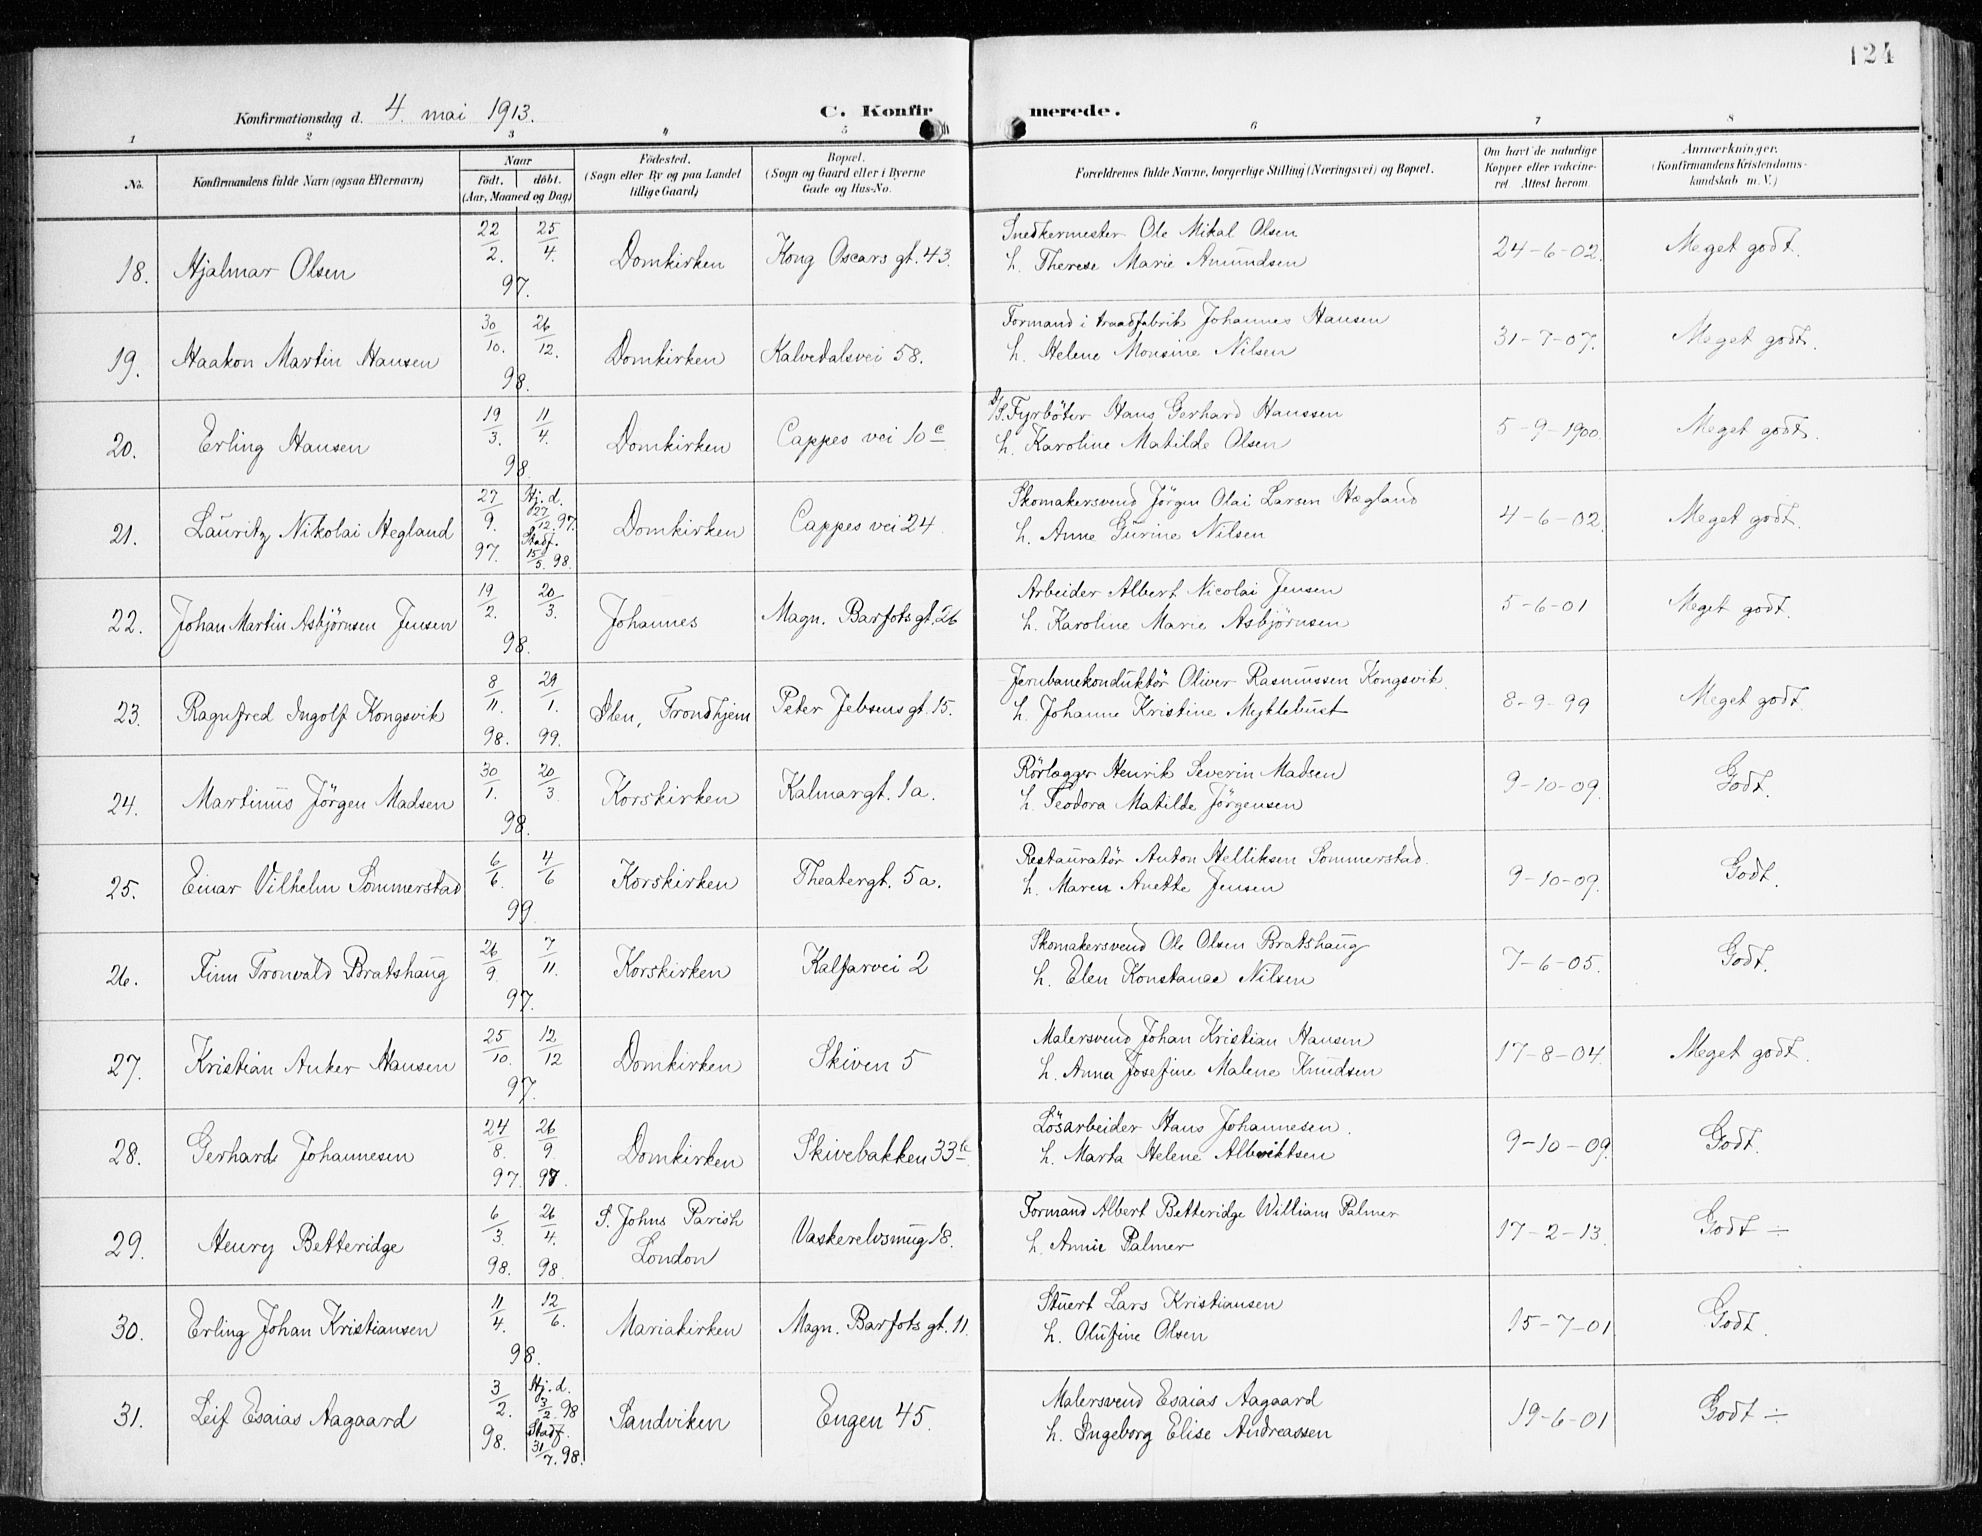 124
Konfirmationsdag d. 4. mai 1913. C. Konfirmerede.
1 2 3 4 5 6 7 8
No. Konfirmandens fulde Navn (ogsaa Efternavn) Naar født. døbt. (Aar, Maaned og Dag) Fødested. (Sogn eller By og paa Landet tillige Gaard) Bopæl. (Sogn og Gaard eller i Byerne Gade og Hus-No. Forældrenes fulde Navne, borgerlige Stilling (Næringsvei) og Bopæl. Om havt de naturlige Kopper eller vakcineret. Attest herom Anmærkninger. (Konfirmandens Kristendomskundskab m. V.)
18. Hjalmar Olsen 22/2. 25/4. 97. Domkirken Kong Oscars gt. 43. Snedkermester Ole Mikal Olsen 24-6-02. Meget godt.
h. Therese Marie Amundsen
19. Haakon Martin Hansen 30/10. 26/12. 98. Domkirken Kalvedalsvei 58. Formand i traadfabrik Johannes Hansen 31-7-07. Meget godt.
h. Helene Monsine Nilsen
20. Erling Hansen 19/3. 11/4. 98 Domkirken Cappes vei 10 c D/S. Fyrbøter Hans Gerhard Hanssen 5-9-1900. Meget godt.
h. Karoline Matilde Olsen
21. Lauritz Nikolai Hegland 27/9. 97. Hj. d. 27/12. 97. Stadf. 15/5. 98. Domkirken Cappes vei 24 Skomakersvend Jörgen Olai Larsen Hegland 4-6-02. Meget godt.
h. Anne Gurine Nilsen
22. Johan Martin Asbjörnsen Jensen 19/2. 20/3. 98. Johannes Magn. Barfots gt. 26 Arbeider Albert Nicolai Jensen 5-6-01 Meget godt.
h. Karoline Marie Asbjörnsen
23. Ragnfred Ingolf Kongsvik 8/11. 98. 29/1. 99. Ilen, Trondhjem Peter Jebsens gt. 15. Jernbanekonduktör Oliver Rasmussen Kongsvik. 8-9-99 Meget godt.
h. Johanne Kristine Myklebust
24. Martinus Jörgen Madsen 30/1. 20/3. 98. Korskirken Kalmargt. 1a. Rörlægger Henrik Severin Madsen 9-10-09. Godt.
h. Teodora Matilde Jörgensen
25. Einar Vilhelm Sommerstad 6/6. 4/6 99. Korskirken Theatergt. 5a. Restauratör Anton Helliksen Sommerstad. 9-10-09. Godt.
h. Maren Anette Jensen
26. Finn Tronvald Bratshaug 26/9. 7/11. 97. Korskirken Kalfarvei 2 Skomakersvend Ole Olsen Bratshaug 7-6-05. Godt.
h. Elen Konstance Nilsen
27. Kristian Anker Hansen 25/10. 12/12 97. Domkirken Skiven 5 Malersvend Johan Kristian Hansen 17-8-04. Meget godt.
h. Anna Josefine Malene Knudsen
28. Gerhard Johannesen 24/8. 97. 26/9. 97. Domkirken Skivebakken 33 Lösarbeider Hans Johannesen. 9-10-09. Godt.
h. Marta Helene Albriktsen
29. Henry Betteridge 6/3. 98. 26/4. 98. S. Johns Parish London Vaskerelvsmug 18. Formand Albert Betteridge William Palmer 17-2-13. Godt ÷
h. Annie Palmer
30. Erling Johan Kristiansen 11/4. 12/6. 98. Mariakirken Magn. Barfots gt. 11. Stuert Lars Kristiansen 15-7-01. Godt.
h. Olufine Olsen
31. Leif Esaias Aagaard 3/2. 98. Hj. d. 3/2. 98 Stadf. 31/7. 98. Sandviken Engen 45. Malersvend Esaias Aagaard 19-6-01 Godt ÷
h. Ingeborg Elise Andreassen